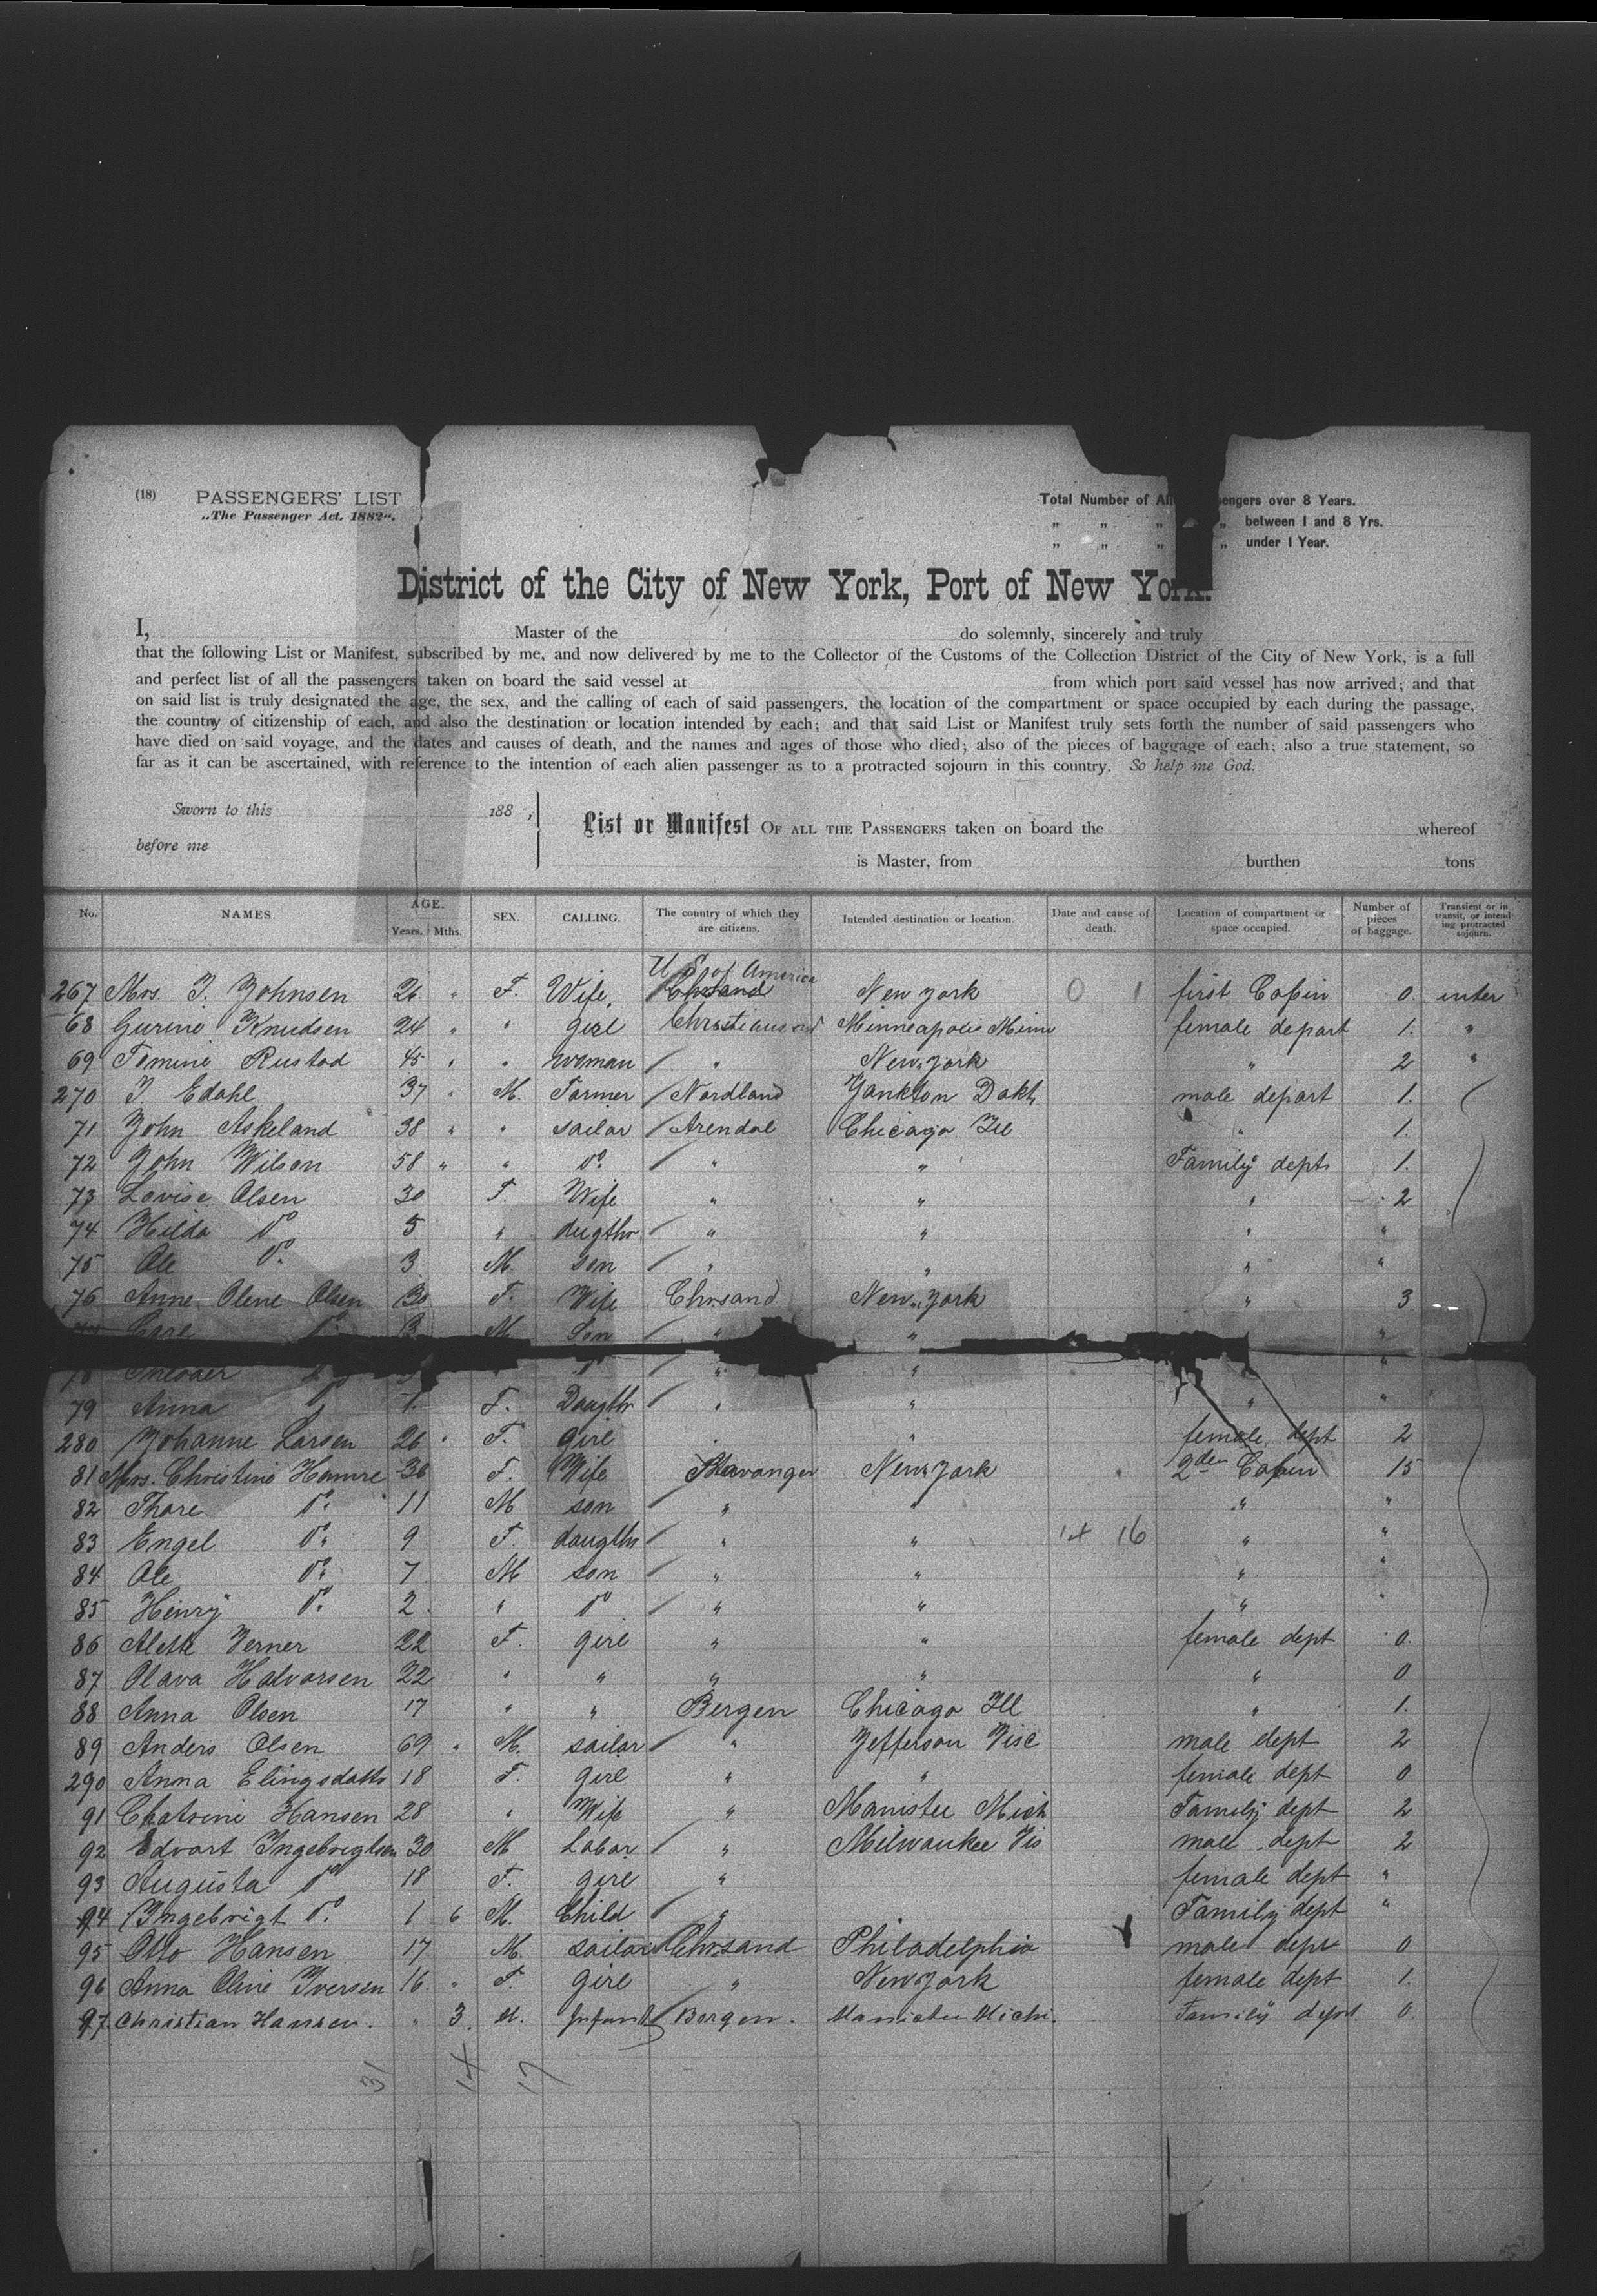 (18) PASSENGERS' LIST
„The Passenger Act, 1882".
Total Number of engers over 8 Years.
„ „ „ „ between 1 and 8 Yrs.
„ „ „ „ under 1 Year.
District of the City of New York, Port of New York.
I, Master of the do solemnly, sincerely and truly
that the following List or Manifest, subscribed by me, and now delivered by me to the Collector of the Customs of the Collection District of the City of New York, is a full
and perfect list of all the passengers taken on board the said vessel at from which port said vessel has now arrived; and that
on said list is truly designated the age, the sex, and the calling of each of said passengers, the location of the compartment or space occupied by each during the passage,
the country of citizenship of each, and also the destination or location intended by each; and that said List or Manifest truly sets forth the number of said passengers who
have died on said voyage, and the dates and causes of death, and the names and ages of those who died; also of the pieces of baggage of each; also a true statement, so
far as it can be ascertained, with reference to the intention of each alien passenger as to a protracted sojourn in this country. So help me God.
Sworn to this 188 ,
before me
List or Manifest OF ALL THE PASSENGERS taken on board the whereof
is Master, from burthen tons
No. NAMES. AGE. Years. Mths. SEX. CALLING. The country of which they are citizens. Intended destination or location. Date and cause of death. Location of compartment or space occupied. Number of pieces of baggage. Transient or in transit, or intending protracted sojourn.
U S of America
267 Mrs. J. Johnsen 26 " F. Wife, Chrsand New York 0 1 first Cabin 0. inter
68 Gurine Knudsen 24 " " girl Christiansand Minneapolis Minn female depart 1. "
69 Tomine Rustad 45 " " woman " New York " 2 "
270 J. Edahl 37 " M. Farmer Nordland Yankton Dakt, male depart 1.
71 John Askeland 38 " " sailor Arendal Chicago Ill " 1.
72 John Wilson 58 " " do " " Family dept 1.
73 Lovise Olsen 30 F. Wife " " " 2
74 Hilda do 5 " dugthr " " " "
75 Ole do 3 M. son " " " "
76 Anne Olene Olsen 30 F. Wife Chrsand New York " 3
M. Son " " "
78 " " "
79 Anna do F. Daugthr " " " "
280 Johanne Larsen 26 " F. girl " " female dept 2
81 Mrs. Christine Hamre 36 F. Wife Stavanger New York 2de Cabin 15
82 Thore do 11 M son " " " "
83 Engel do 9 F. daugthr " " 14 16 " "
84 Ole do 7 M son " " " "
85 Henry do 2 " do " " " "
86 Aleth Jerner 22 F. girl " " female dept 0.
87 Olava Halvorsen 22 " " " " " 0
88 Anna Olsen 17 " " Bergen Chicago Ill " 1.
89 Anders Olsen 69 " M. sailor " Jefferson Visc male dept 2
290 Anna Elingsdatts 18 F. girl " " female dept 0
91 Chatrine Hansen 28 " Wife " Manistee Mich Family dept 2
92 Edvart Ingebrigtsen 30 M Labor " Milwaukee Vis male dept 2
93 Augusta do 18 F. girl " female dept "
94 Ingebrigt do 1 6 M. Child " Family dept "
95 Otto Hansen 17 M. sailor Chrsand Philadelphia male dept 0
96 Anna Oline Iversen 16 " F. girl " New York female dept 1.
97 Christian Hansen. " 3. M. Infant Bergen. Manistee Michi. Family dept 0
31 14 17